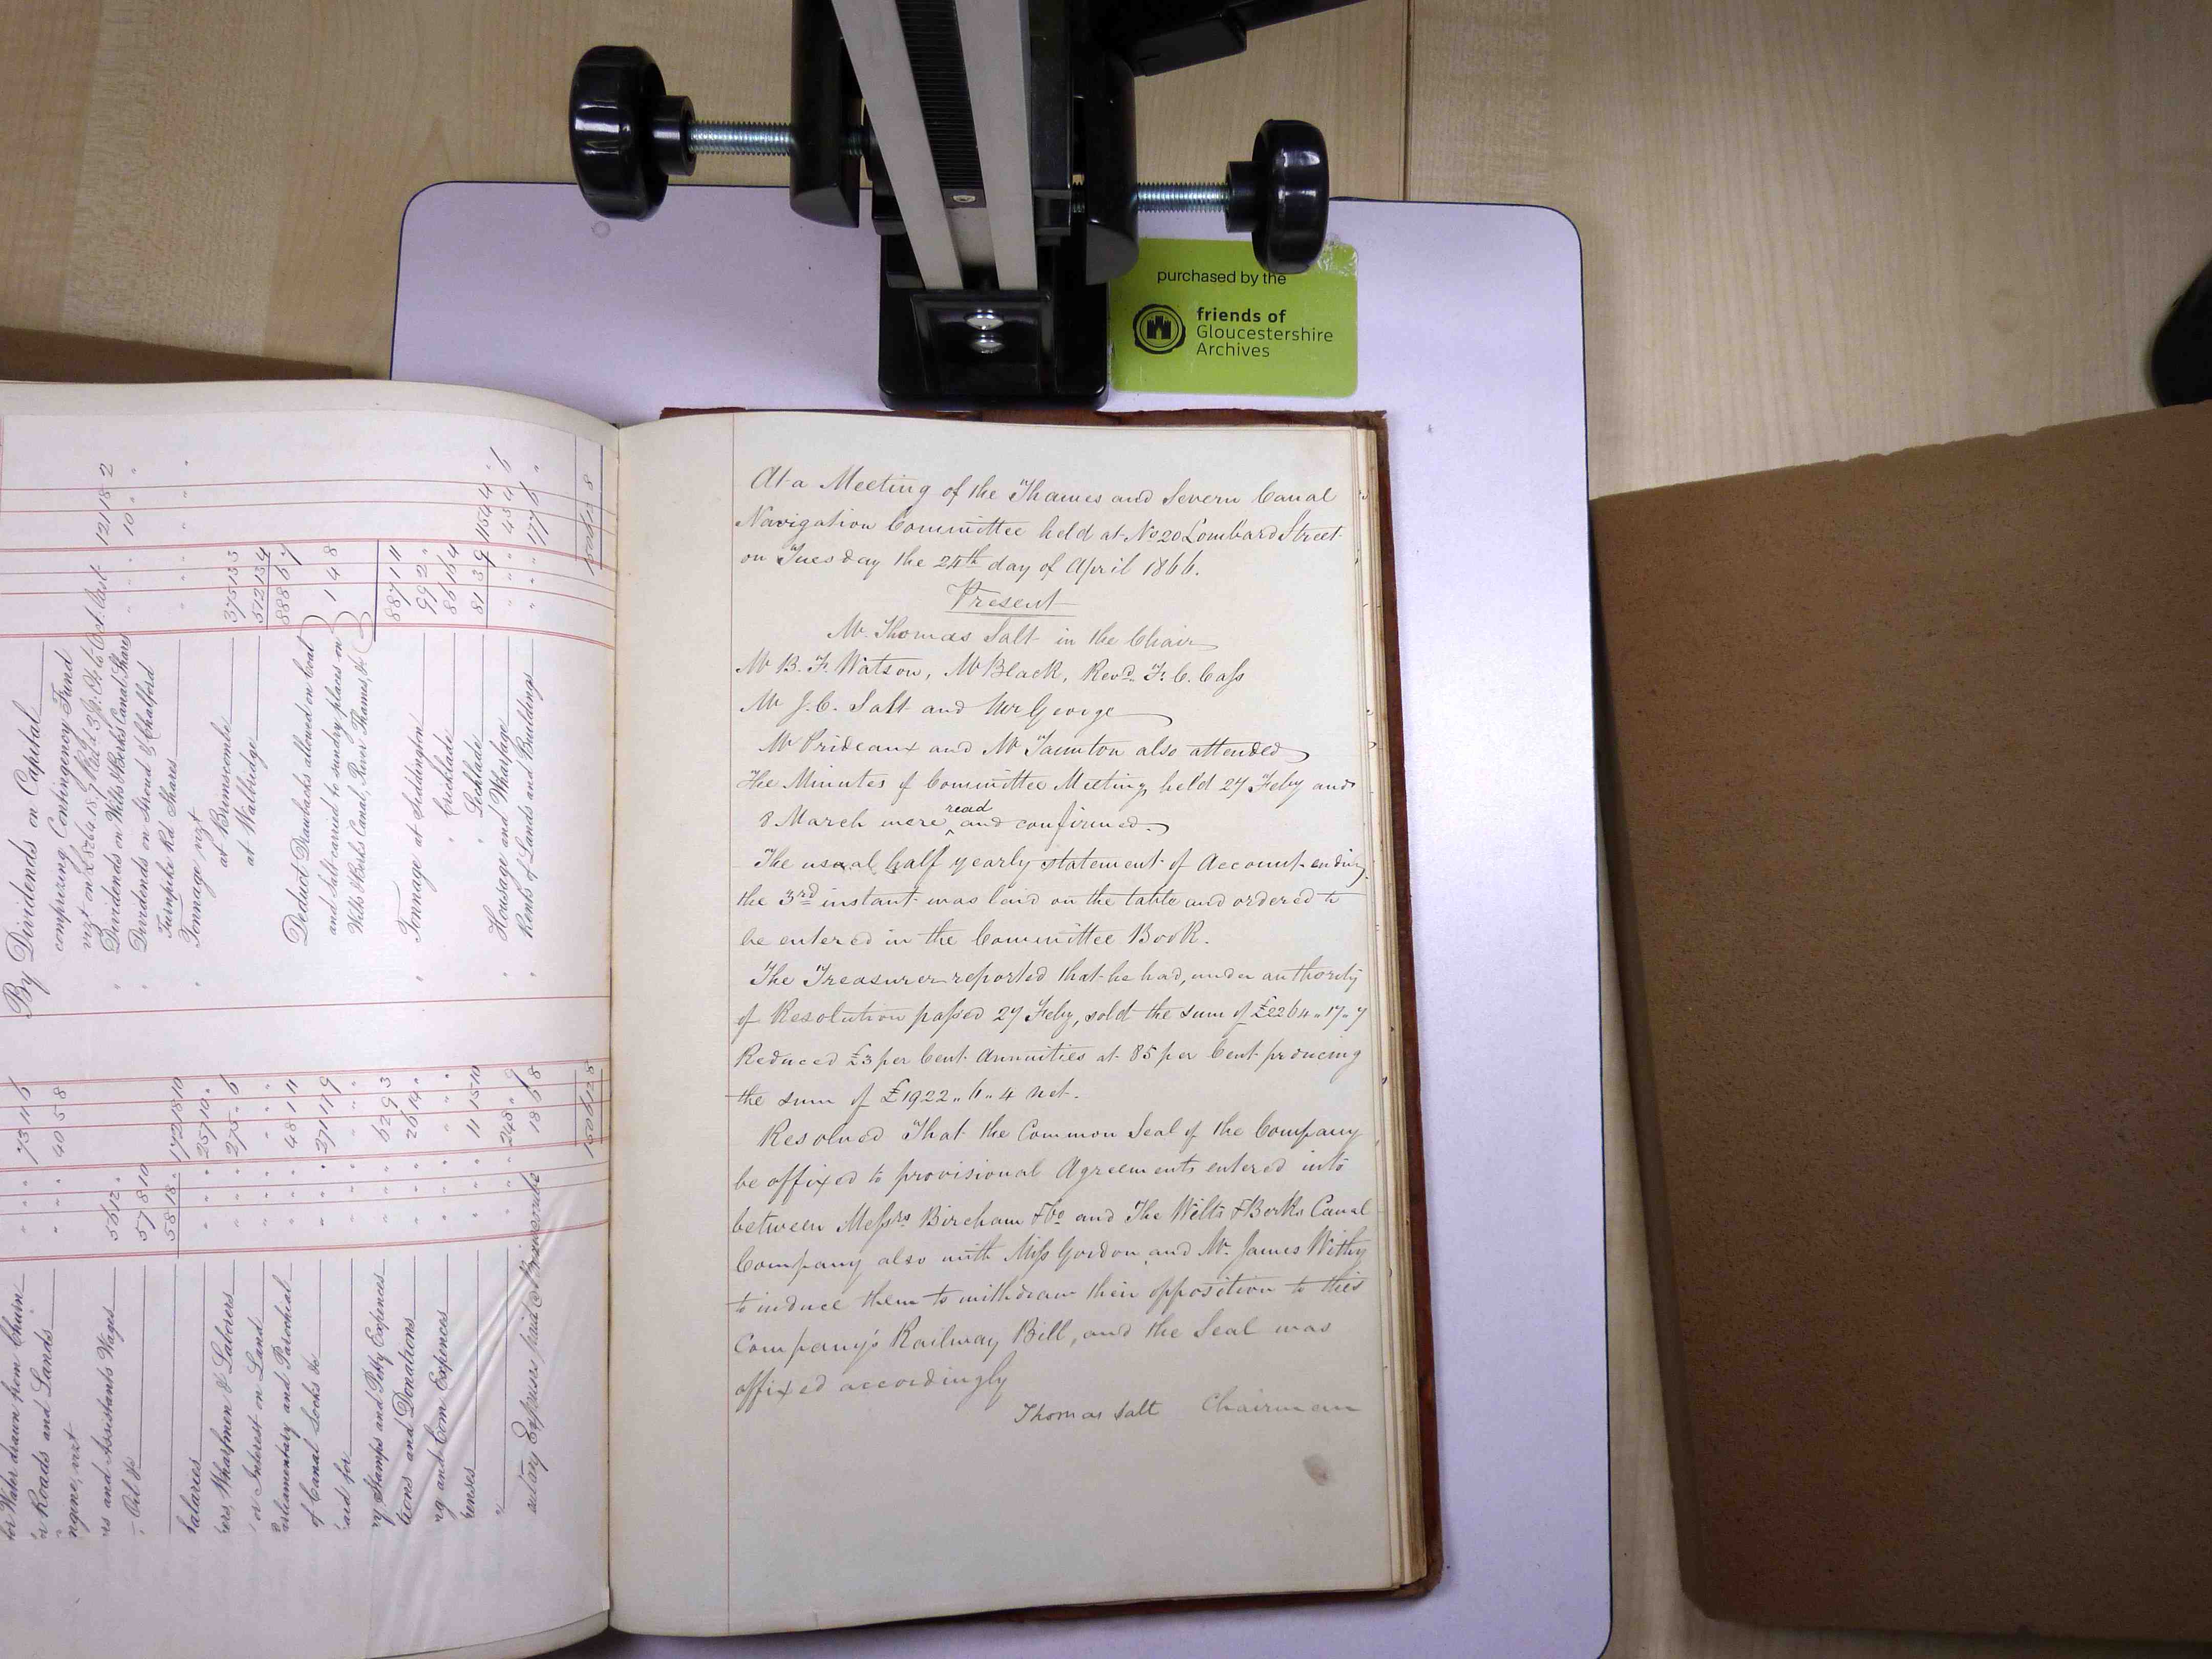 purchased by the
friends of
Gloucestershire
Archives
At a Meeting of the Thames and Severn Canal
Navigation Committee held at No 20 Lombard Street
on Tuesday the 24th day of April 1866.
Present
Mr. Thomas Salt in the Chair
Mr B. F. Watson, Mr Black, Revd. F. C. Cass
Mr J. C. Salt and Mr George
Mr Prideaux and Mr Taunton also attended
The Minutes of Committee Meeting, held 27 Feby and
8 March were read and confirmed.
The usual half yearly statement of Account ending
the 3rd instant was laid on the table and ordered to
be entered in the Committee Book.
The Treasurer reported that he had, under authority
of Resolution passed 27 Feby, sold the sum of £2264 „ 17 „ 7
Reduced £3 per Cent Annuities at 85 per Cent producing
the sum of £1922 „ 6 „ 4 net.
Resolved That the Common Seal of the Company
be affixed to provisional Agreements entered into
between Messrs Bircham & Co and The Wilts & Berks Canal
Company also with Miss Gordon and Mr. James Withy
to induce them to withdraw their opposition to this
Company's Railway Bill, and the Seal was
affixed accordingly
Thomas Salt Chairman
By Dividends on Capital
comprizing Contingency Fund
Dividends on Wilts & Berks Canal Share
Dividends on Stroud & Chalford
Turnpike Rd Shares
Tonnage vizt
at Brimscombe 375 15 3
at Walbridge 512 13 4
888 8 7
Deduct Drawbacks allowed on Coal
and Salt carried to sundry places on
Wilts & Berks Canal, River Thames, &c 1 4 8
887 1 11
Tonnage at Siddington 99 2 "
" Cricklade 86 16 4
" Lechlade 81 3 9 1154 4 "
Housage and Wharfage 45 4 6
Rents of Lands and Buildings 177 6 "
for Water drawn from Churn 73 11 6
Roads and Lands 40 5 8
and Assistants Wages 56 12 "
Oil &c 57 8 10
Salaries
Wharfmen & Laborers 257 10 "
or Interest on Land 275 " 6
Parliamentary and Parochial
of Canal Locks &c 48 1 11
and for 271 11 9
Stamps and Petty Expences
and Donations 62 9 3
and Com Expences 26 14 "
11 15 10